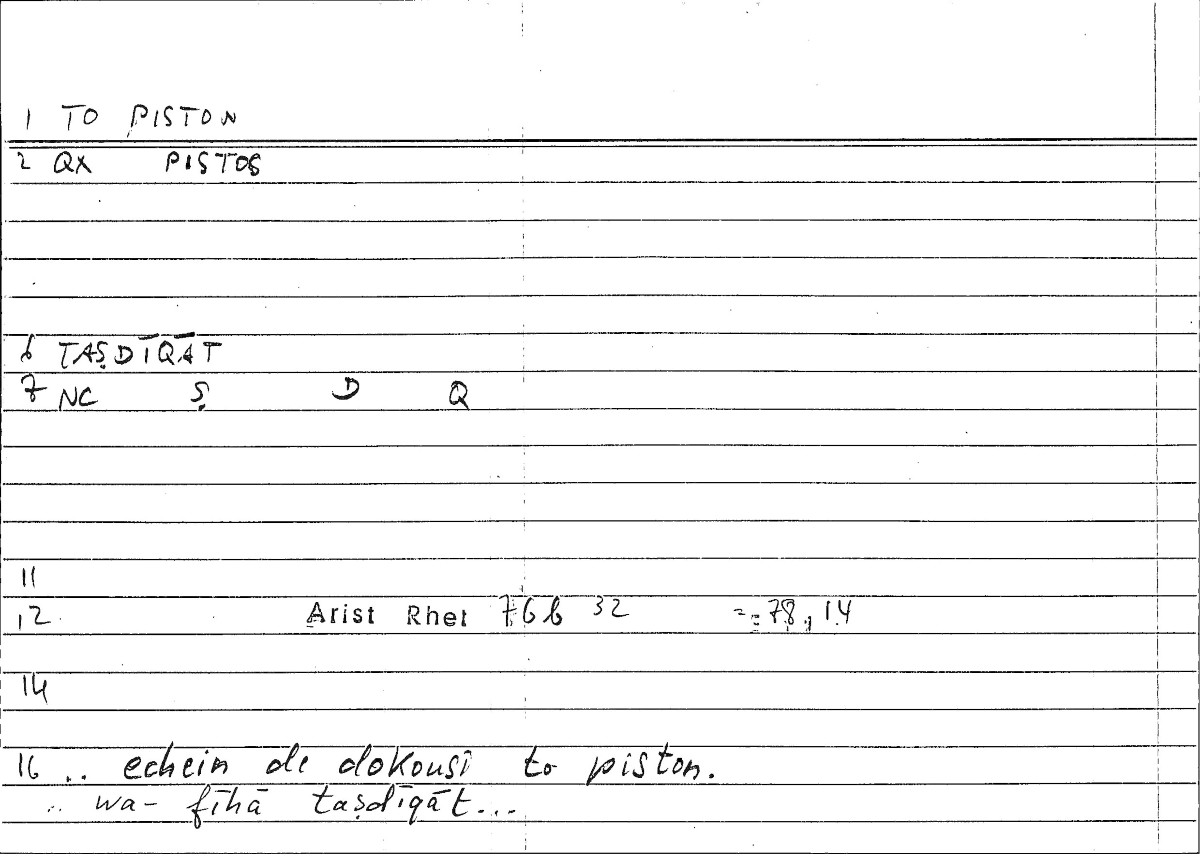 1 TO PISTON
2 QX PISTOS
6 TAṢDĪQĀT
7 NC Ṣ D Q
11
12 Arist Rhet 76b 32 = 78,14
14
16 .. echein de dokousi to piston.
.. wa- fīhā taṣdīqāt...